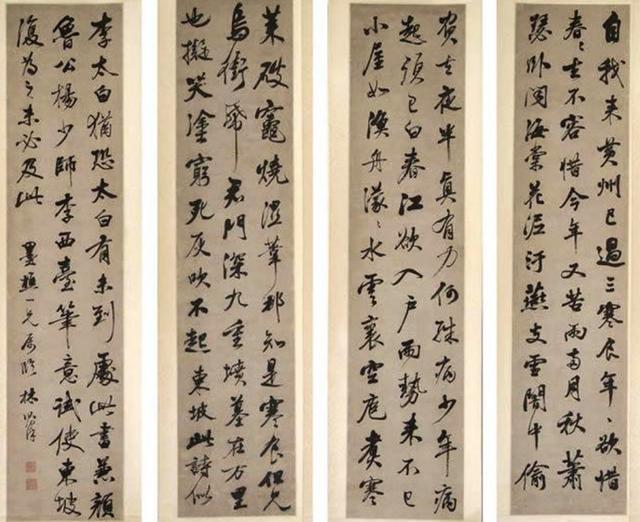 自我来黄州已過三寒食年〻欲惜
春〻去不容惜今年又苦雨兩月秋蕭
瑟卧聞海棠花泥汙燕支雪闇中偷
負去夜半真有力何殊病少年病
起須已白春江欲入户雨勢来不已
小屋如漁舟濛〻水雲裏空庖煮寒
菜破竈燒濕葦那知是寒食但見
烏銜帋君門深九重墳墓在万里
也擬哭塗窮死灰吹不起東坡此詩似
李太白猶恐太白有未到處此書兼顔
魯公楊少師李西臺筆意試使東坡
復為之未必及此
墨樵一兄属臨 林則徐